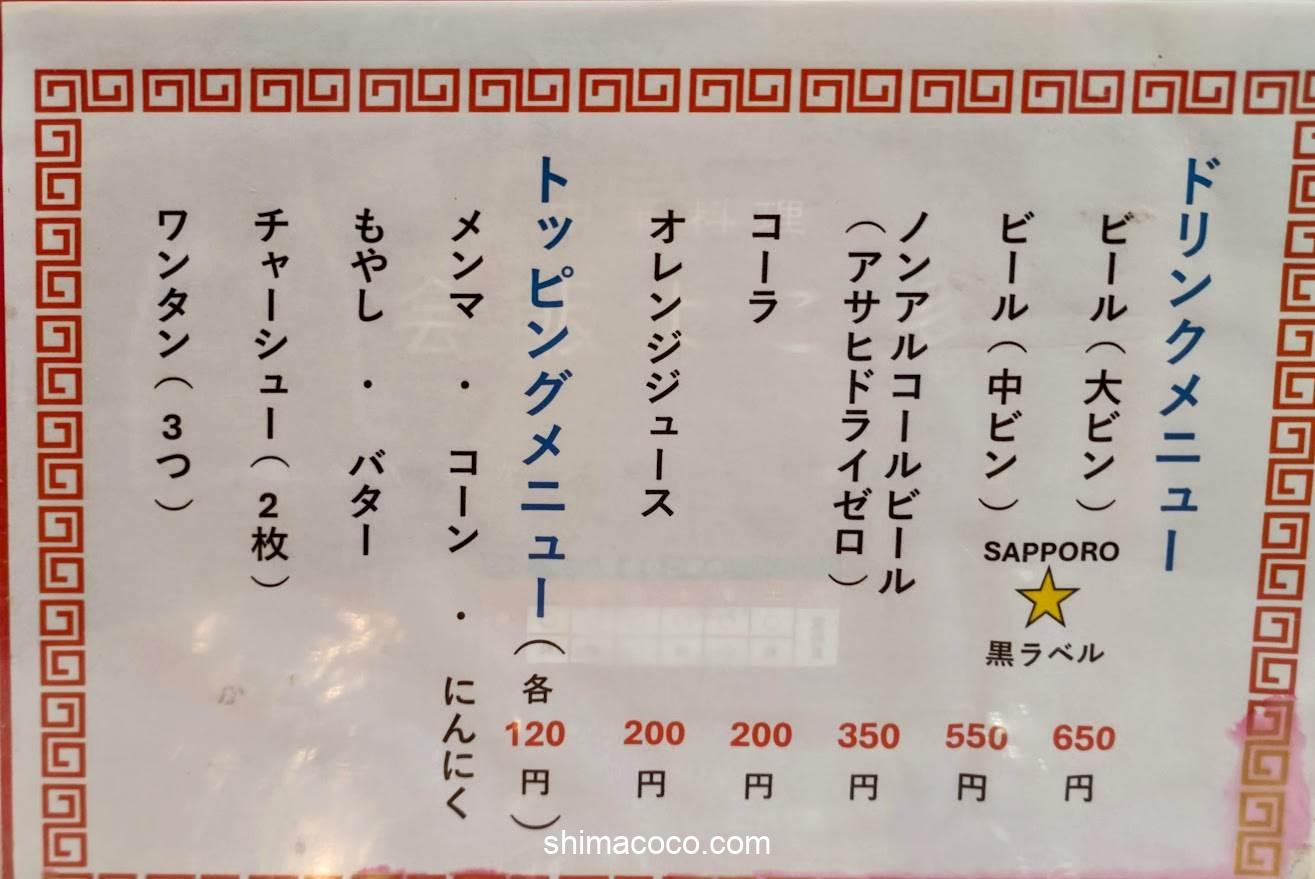 ドリンクメニュー
ビール（大ビン） 650円
ビール（中ビン） 550円
SAPPORO
黒ラベル
ノンアルコールビール
（アサヒドライゼロ） 350円
コーラ 200円
オレンジジュース 200円
トッピングメニュー（各120円）
メンマ ・ コーン ・ にんにく
もやし ・ バター
チャーシュー（2枚）
ワンタン（3つ）
shimacoco.com